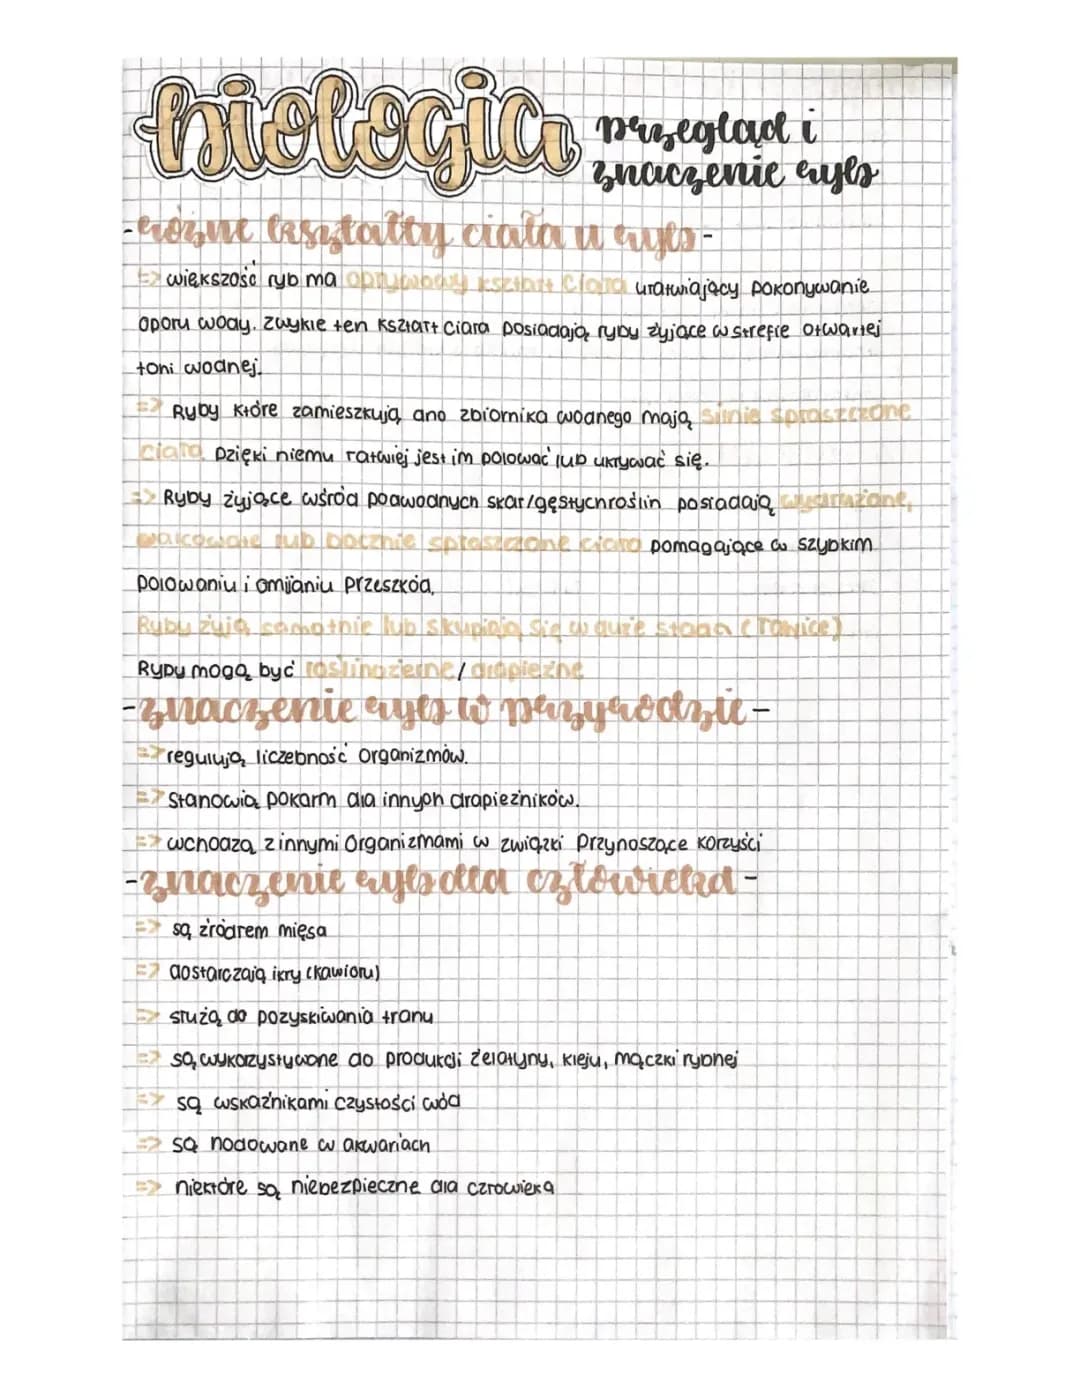 biologia
przegląd i
znaczenie ryb
-różne kształty ciała u ryb-
=> większość ryb ma opływowy kształt ciała ułatwiający pokonywanie
oporu wody. Zwykle ten kształt ciała posiadają ryby żyjące w strefie otwartej
toni wodnej.
=> Ryby które zamieszkują dno zbiornika wodnego mają silnie spłaszczone
ciało. Dzięki niemu łatwiej jest im polować lub ukrywać się.
=> Ryby żyjące wśród podwodnych skał/gęstych roślin posiadają wydłużone,
walcowate lub bocznie spłaszczone ciało pomagające w szybkim
polowaniu i omijaniu przeszkód,
Ryby żyją samotnie lub skupiają się w duże stada (ławice)
Ryby mogą być roślinożerne/drapieżne
-znaczenie ryb w przyrodzie-
=> regulują liczebność organizmów.
=> Stanowią pokarm dla innych drapieżników.
=> wchodzą z innymi organizmami w związki przynoszące korzyści
-znaczenie ryb dla człowieka-
=> są źródłem mięsa
=> dostarczają ikry (kawioru)
=> służą do pozyskiwania tranu
=> są wykorzystywane do produkcji żelatyny, kleju, mączki rybnej
=> są wskaźnikami czystości wód
=> są hodowane w akwariach
=> niektóre są niebezpieczne dla człowieka